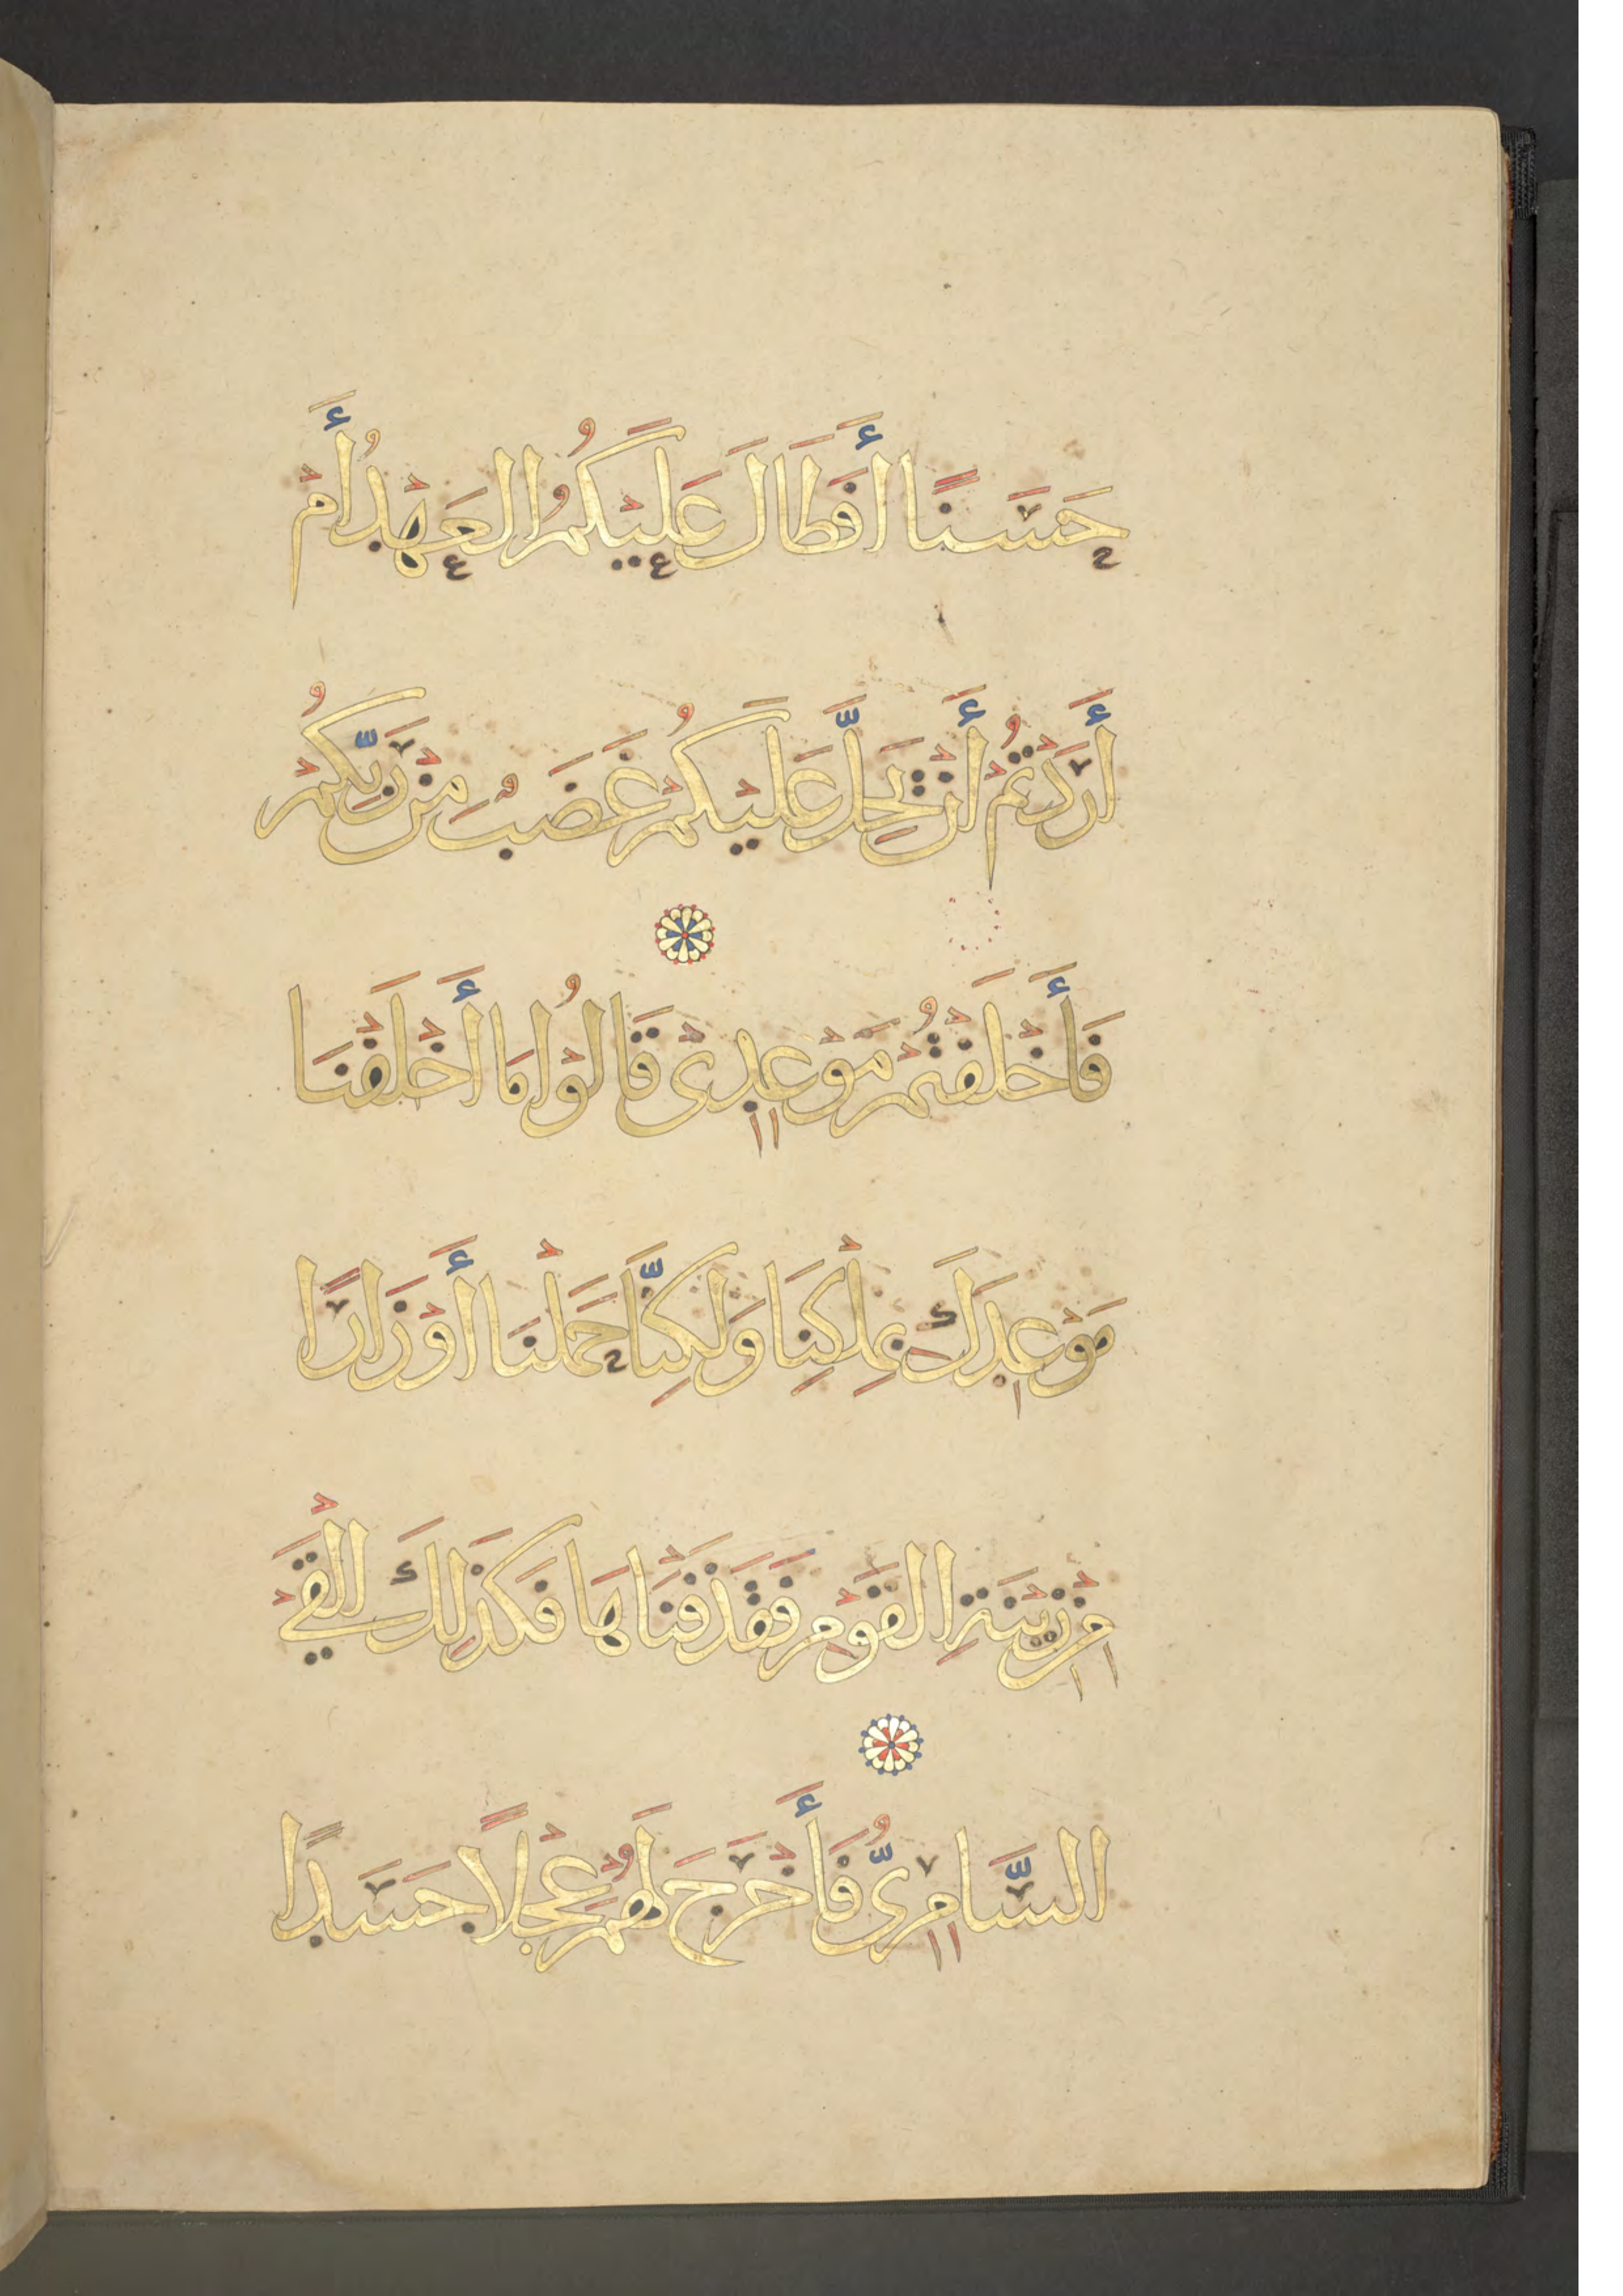 حَسَنًا أَفَطَالَ عَلَيْكُمُ الْعَهْدُ أَمْ
أَرَدْتُمْ أَنْ يَحِلَّ عَلَيْكُمْ غَضَبٌ مِنْ رَبِّكُمْ
فَأَخْلَفْتُمْ مَوْعِدِى قَالُوْا مَا أَخْلَفْنَا
مَوْعِدَكَ بِمِلْكِنَا وَلَكِنَّا حَمَلْنَا أَوْزَارًا
مِنْ زِيْنَةِ الْقَوْمِ فَقَذَفْنَاهَا فَكَذَلِكَ أَلْقَيْ
السَّامِرِىُّ فَأَخْرَجَ لَهُمْ عِجْلًا جَسَدًا